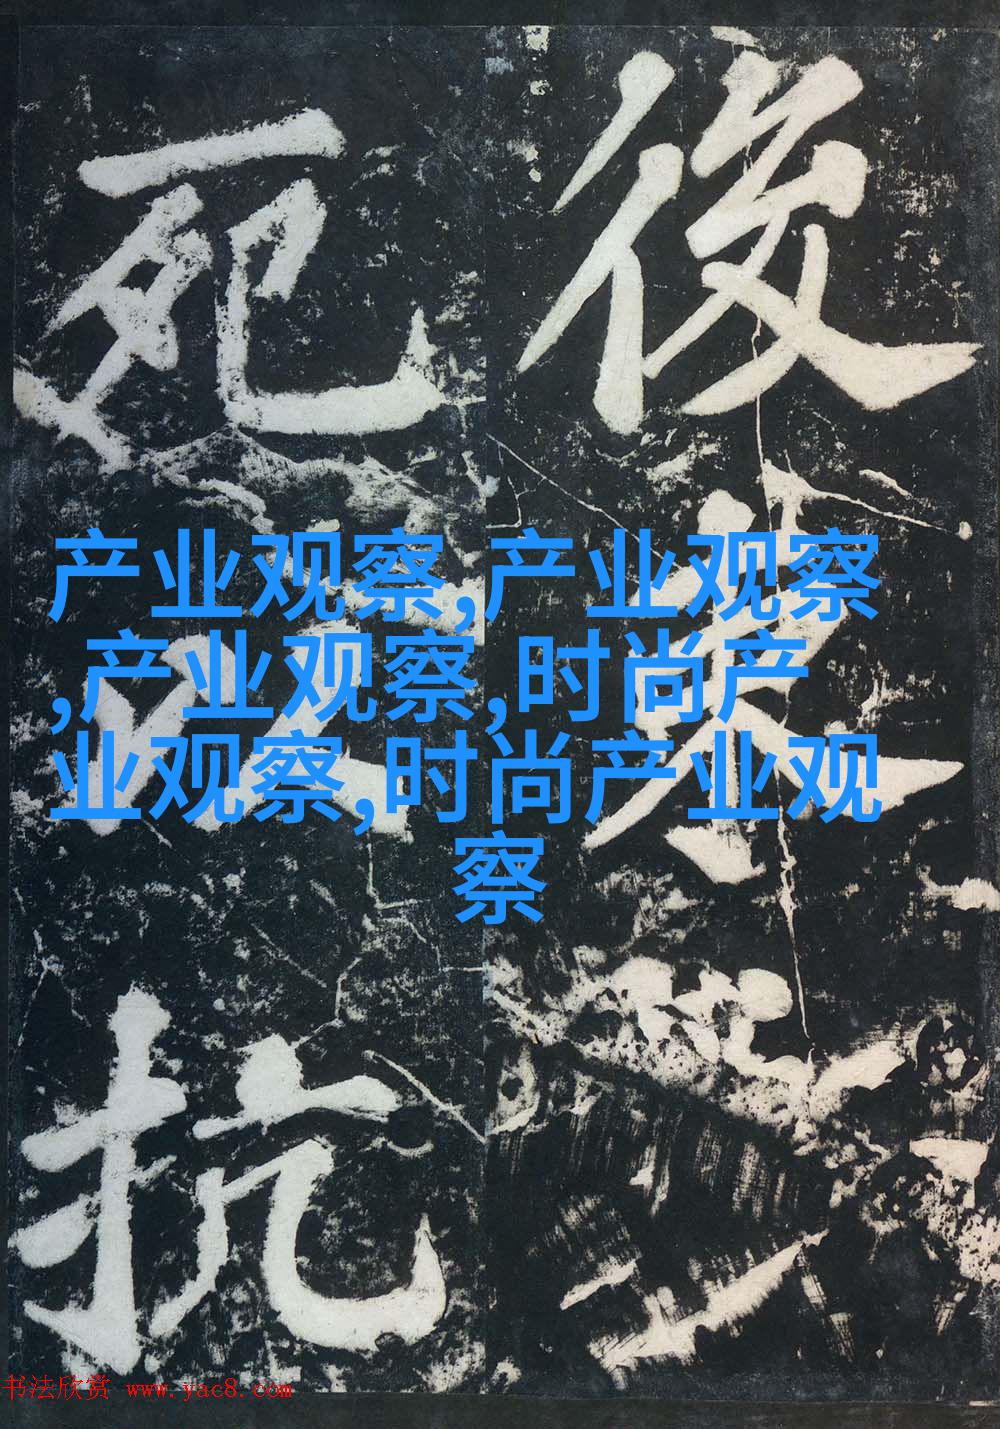 產业观察,产业观察
,产业观察,时尚产
业观察,时尚产业观
察
後
死
抗
书法欣赏 www.yac8.com